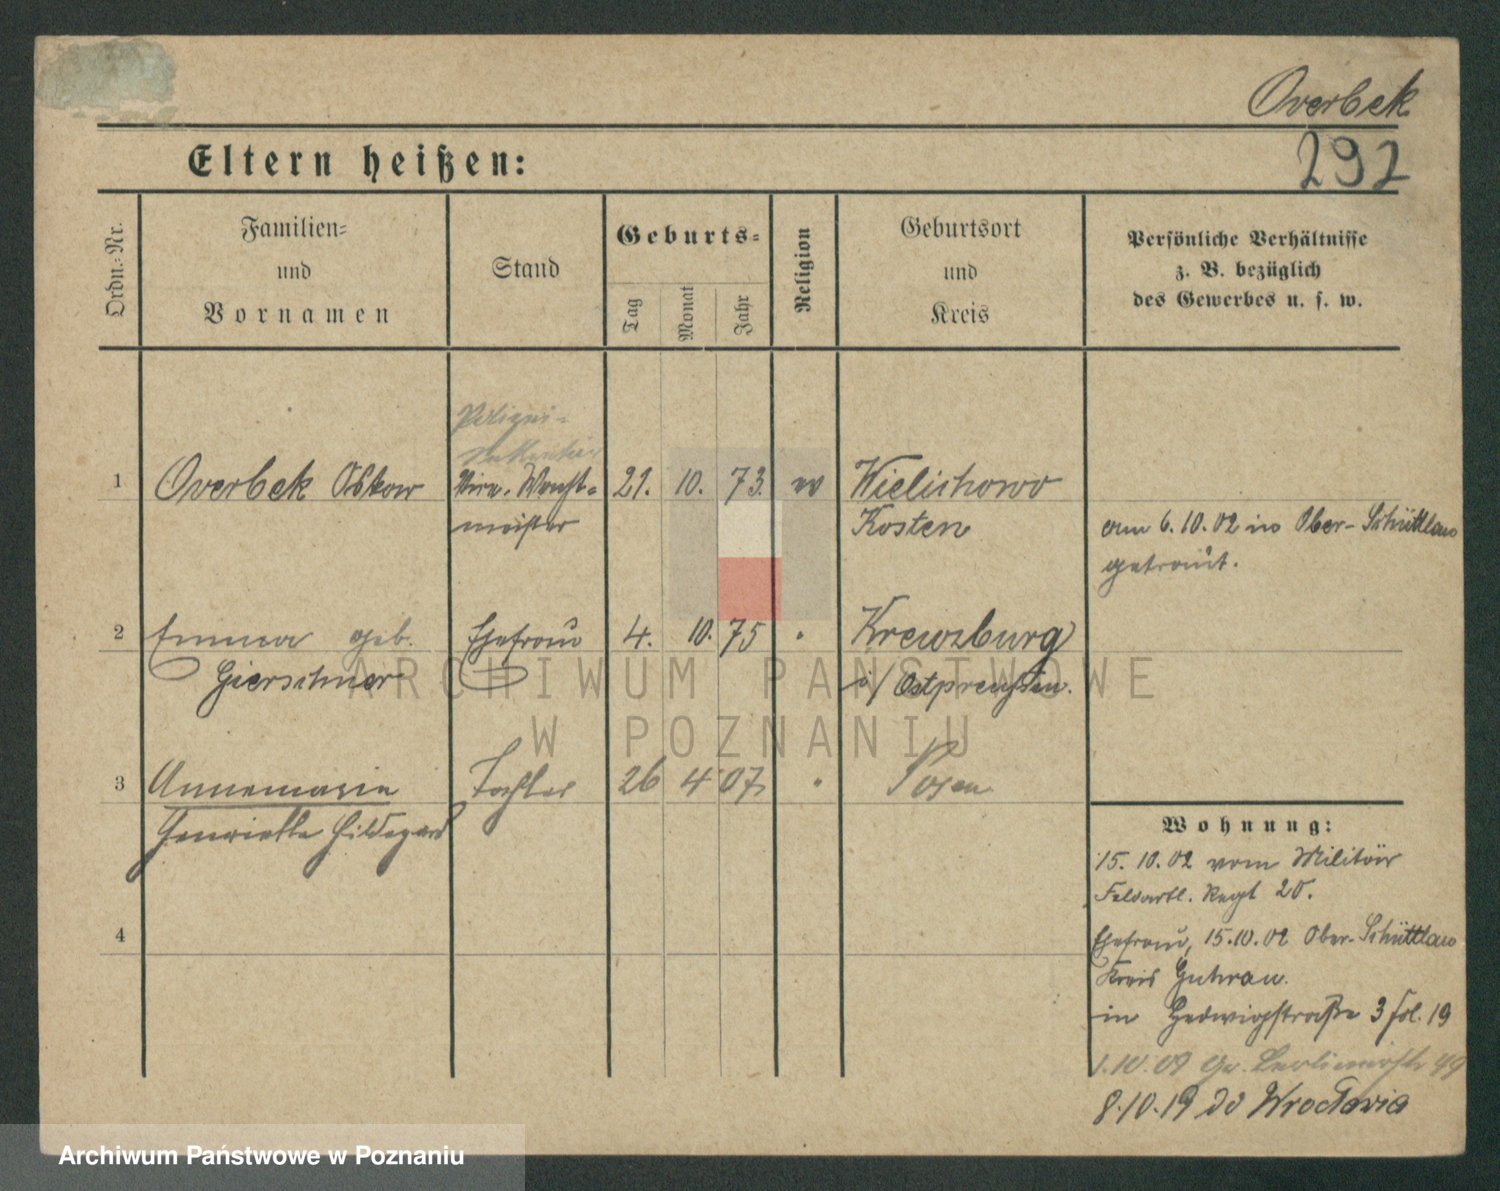 Overbek
292
Eltern heißen:
Ordn.-Nr.
Familien-
und
Vornamen
Stand
Geburts-
Tag
Monat
Jahr
Religion
Geburtsort
und
Kreis
Persönliche Verhältnisse
z. B. bezüglich
des Gewerbes u. s. w.
Polizei-
1 Overbek Oskar Wacht- 21. 10. 73. ev Wielichowo
meister Kosten
am 6.10.02 in Ober-Schüttlau
getraut.
2 Emma geb. Ehefrau 4. 10. 75 " Kreuzburg
Gierschner i/ Ostpreußen.
3 Annemarie Tochter 26 4 07 " Posen
Henriette Hildegard
4
Wohnung:
15. 10. 02 vom Militär
Feldartl. Regt 20.
Ehefrau, 15.10.02 Ober-Schüttlau
Kreis Guhrau.
in Hedwigstraße 3 fol. 19
1.10.09 Gr. Berlinerstr 99
8.10.19 do Wrocławia
ARCHIWUM PAŃSTWOWE
W POZNANIU
Archiwum Państwowe w Poznaniu